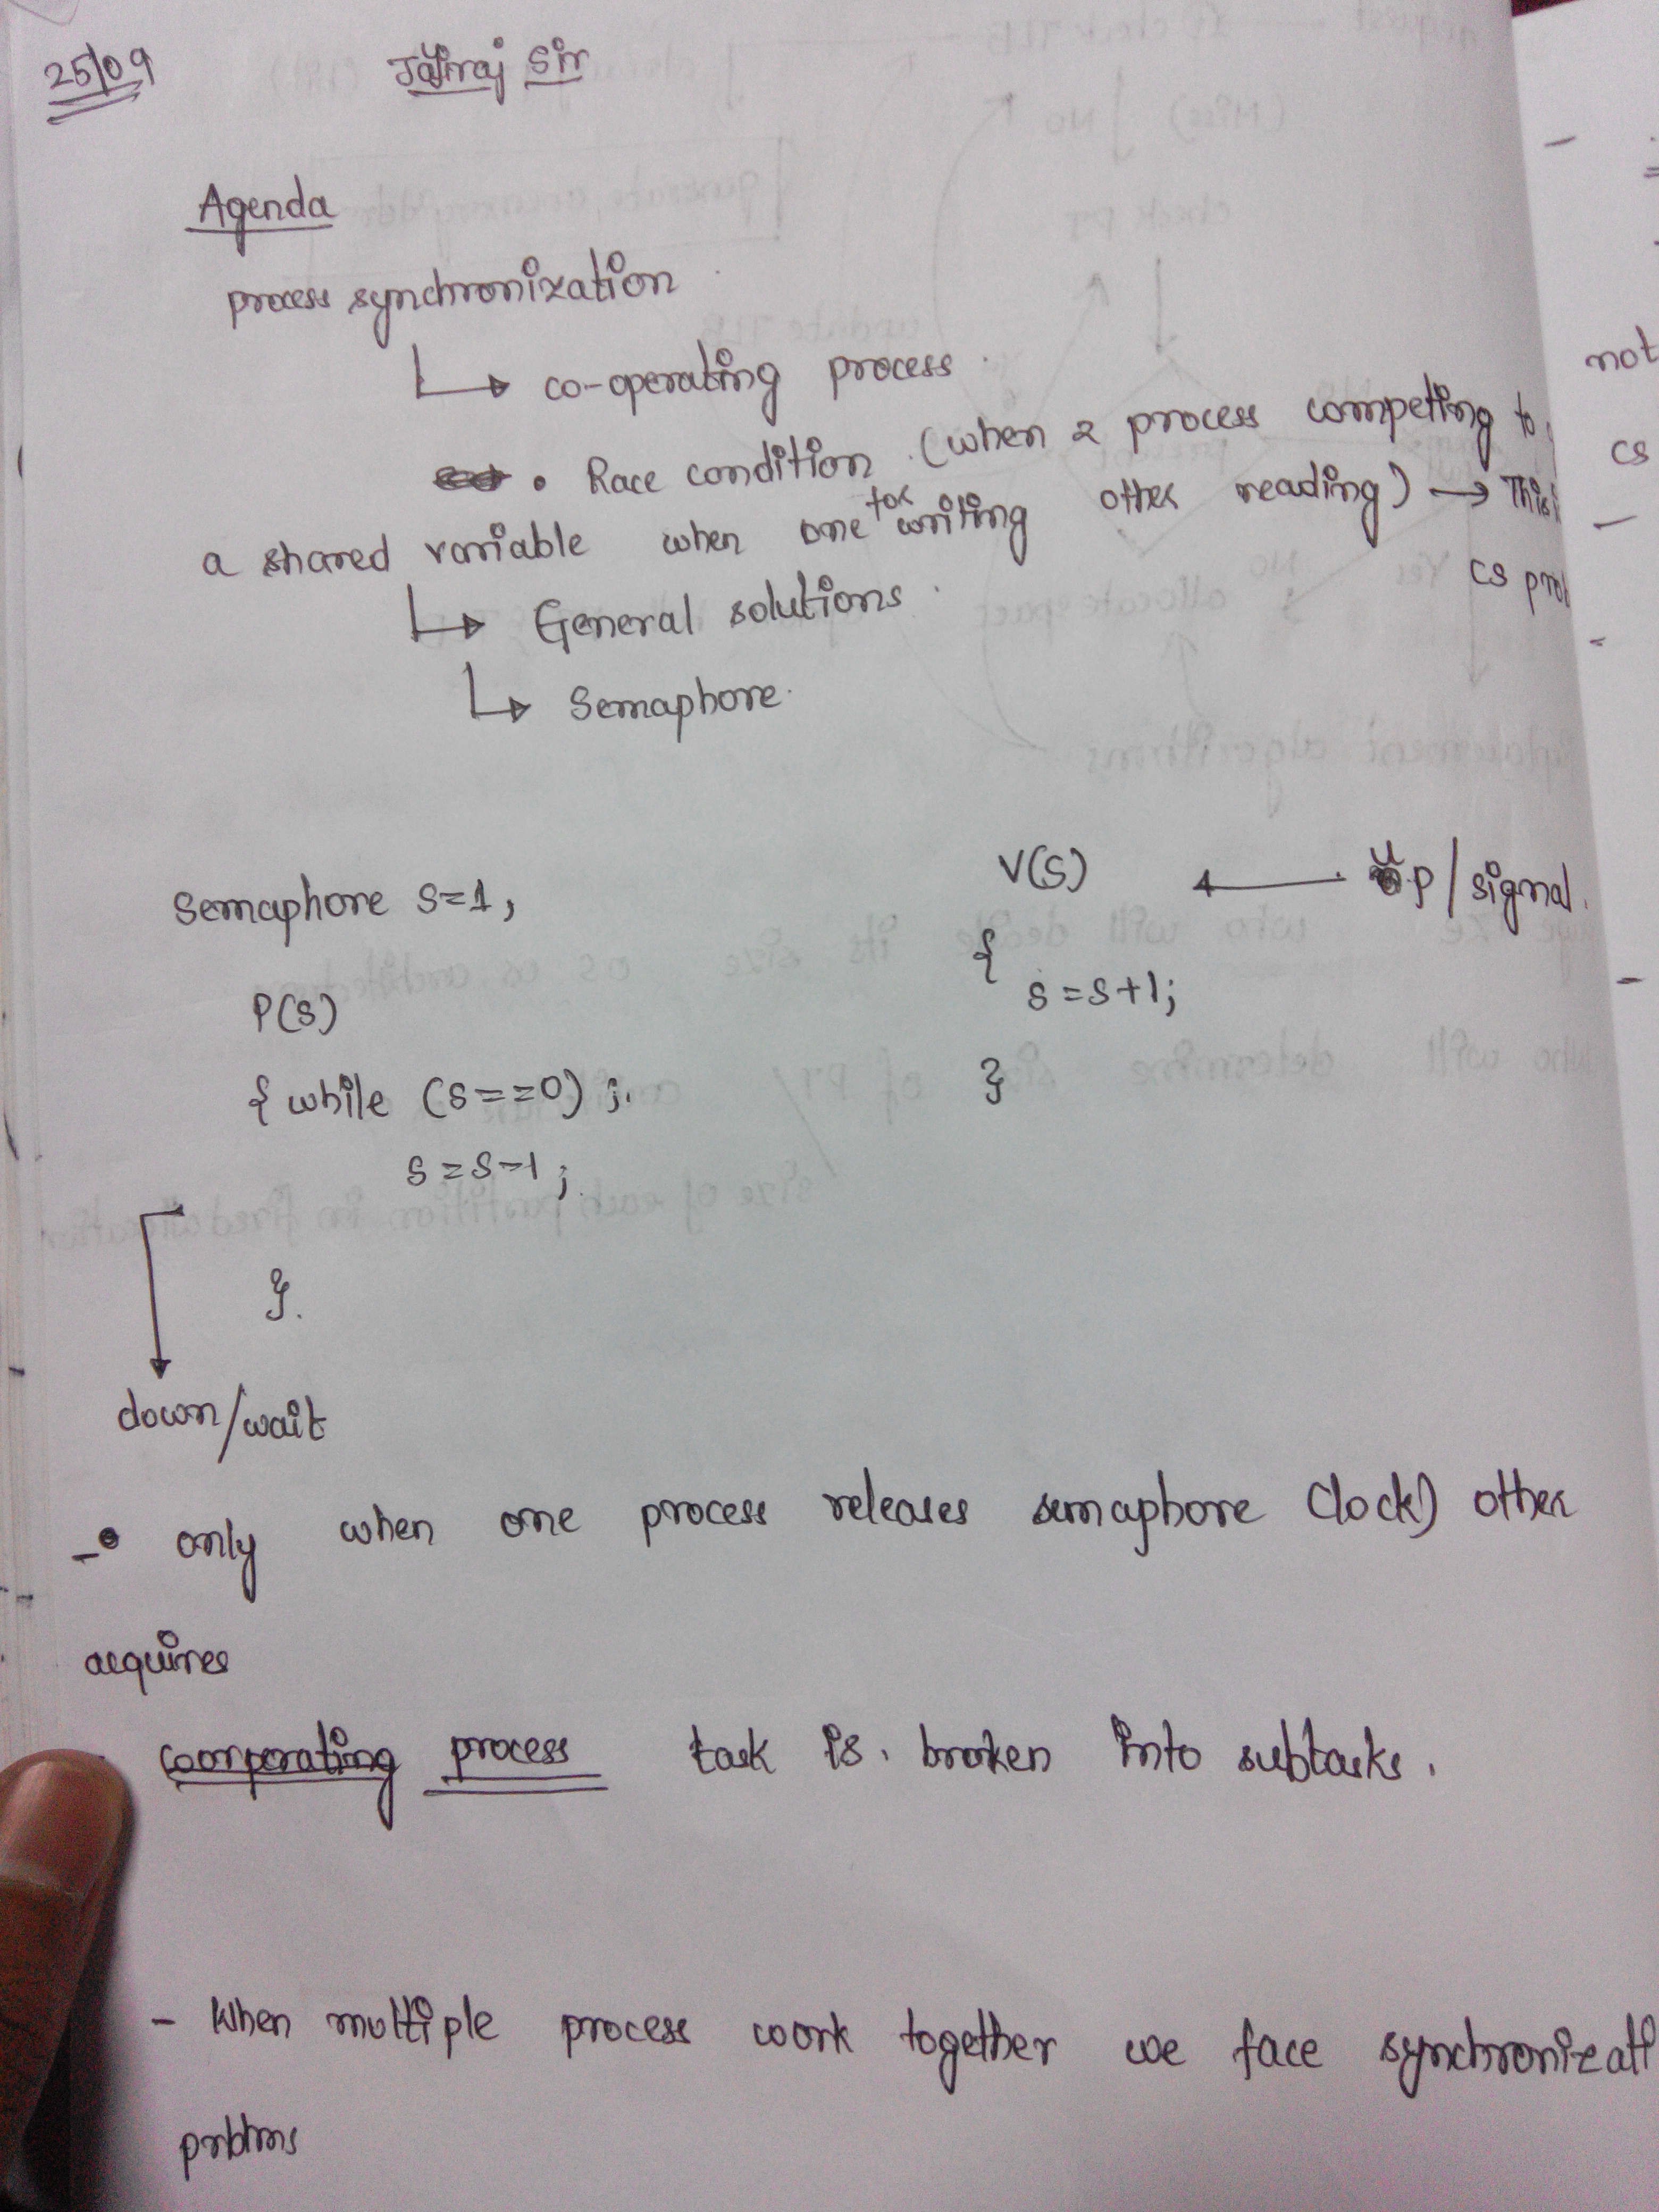 25/09 Jayraj Sir
Agenda
process synchronization
co-operating process.
• Race condition (when 2 process competing to
a shared variable when one for writing other reading) → This
CS pro
General solutions.
Semaphore.
Semaphore S=1;
P(S)
{ while (S==0) ;
S=S-1;
}
down/wait
V(S) ← up/signal.
{
S=S+1;
}
- • only when one process releases semaphore (lock) other
acquires
cooperating process task is broken into subtasks.
- When multiple process work together we face synchronizati
problms
not
CS